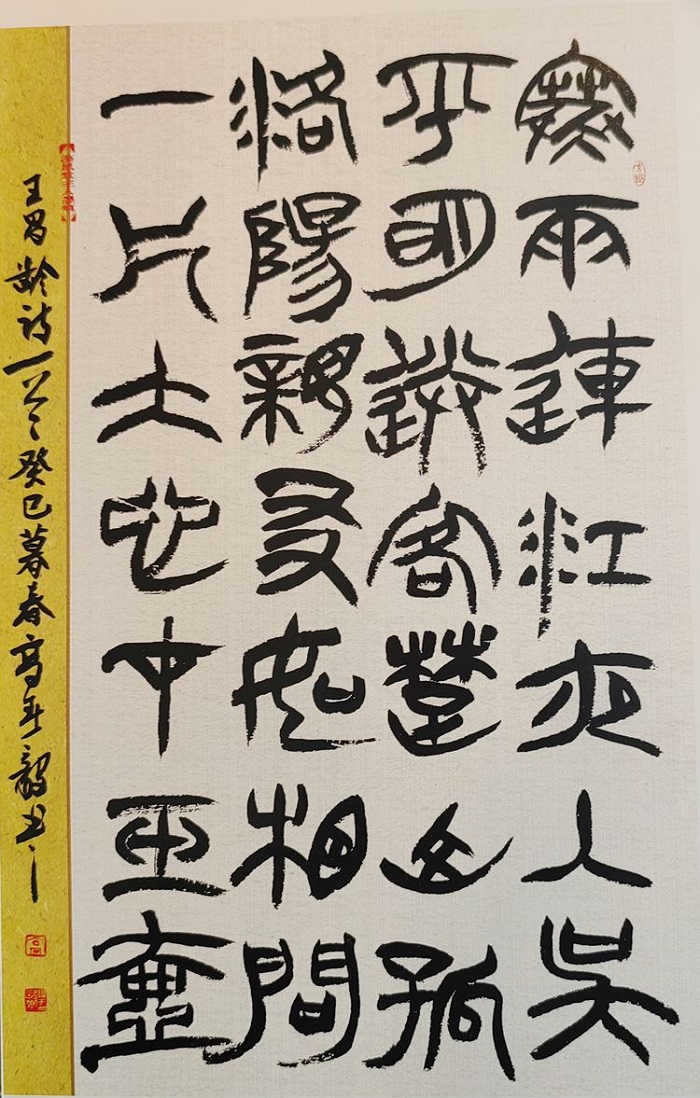 寒雨連江夜入吳
平明送客楚山孤
洛陽親友如相問
一片冰心在玉壺
王昌齡詩一首癸巳暮春高